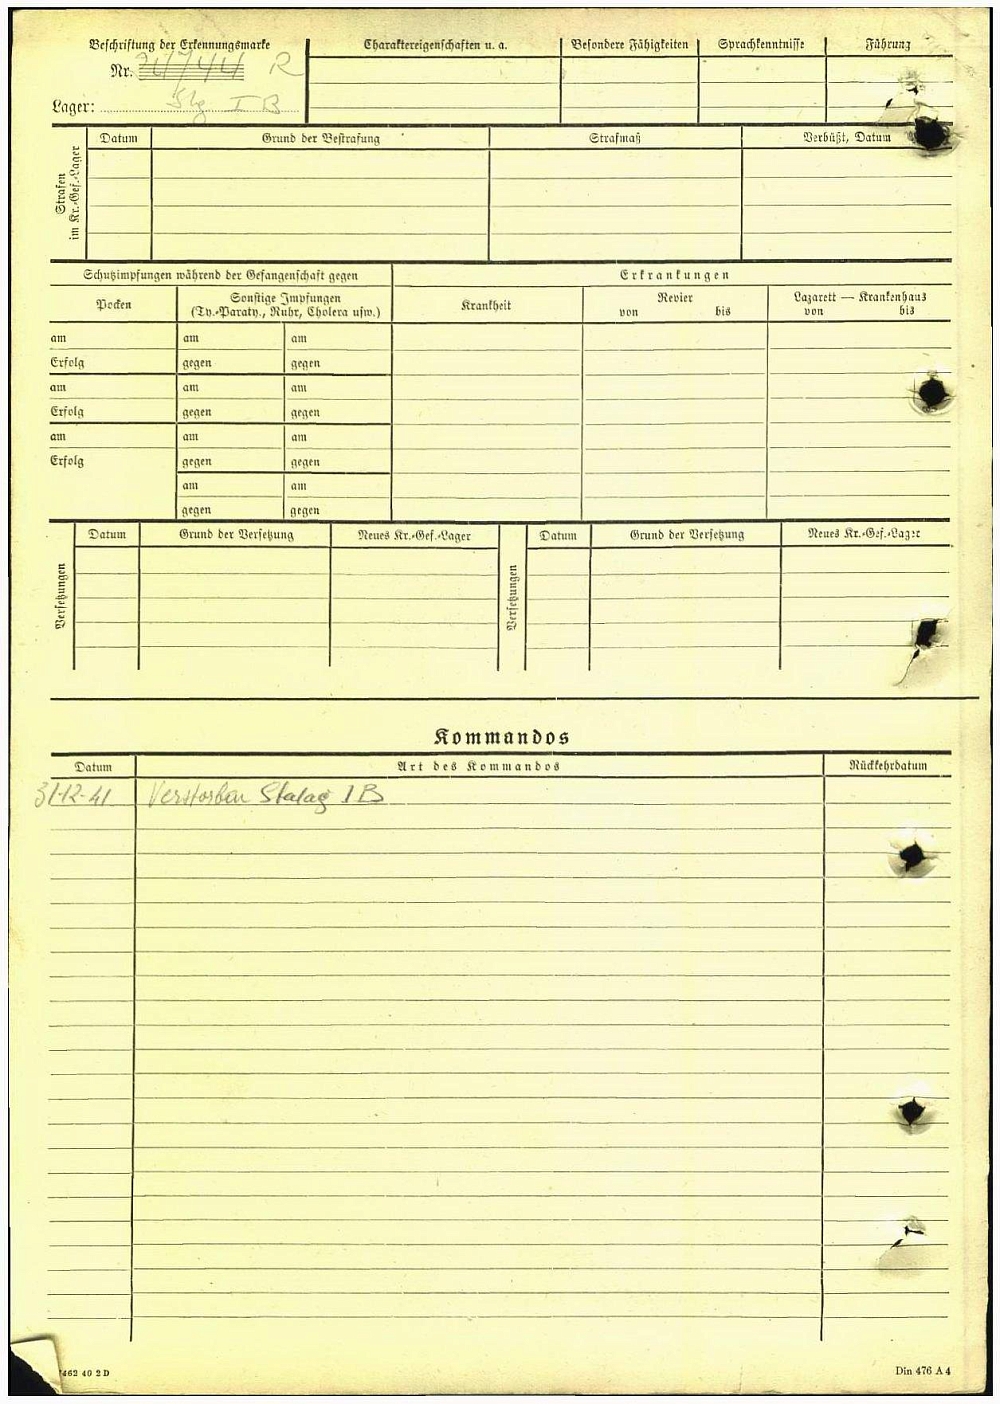 Beschriftung der Erkennungsmarke
Nr. R
Lager: Stlg I B
Charaktereigenschaften u. a.
Besondere Fähigkeiten
Sprachkenntnisse
Führung
Strafen im Kr.-Gef.-Lager
Datum
Grund der Bestrafung
Strafmaß
Verbüßt, Datum
Schutzimpfungen während der Gefangenschaft gegen
Erkrankungen
Pocken
Sonstige Impfungen
(Ty.-Paraty., Ruhr, Cholera usw.)
Krankheit
Revier
von bis
Lazarett — Krankenhaus
von bis
am am am
Erfolg gegen gegen
am am am
Erfolg gegen gegen
am am am
Erfolg gegen gegen
am am
gegen gegen
Versetzungen
Datum
Grund der Versetzung
Neues Kr.-Gef.-Lager
Versetzungen
Datum
Grund der Versetzung
Neues Kr.-Gef.-Lager
Kommandos
Datum
Art des Kommandos
Rückkehrdatum
31.12.41 Verstorben Stalag I B
462 40 2 D
Din 476 A 4